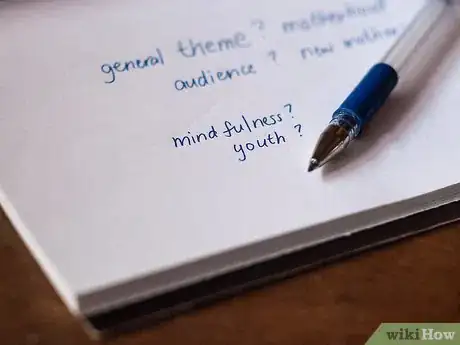 general theme? motherhood
audience? new mother
mindfulness?
youth?
wikiHow